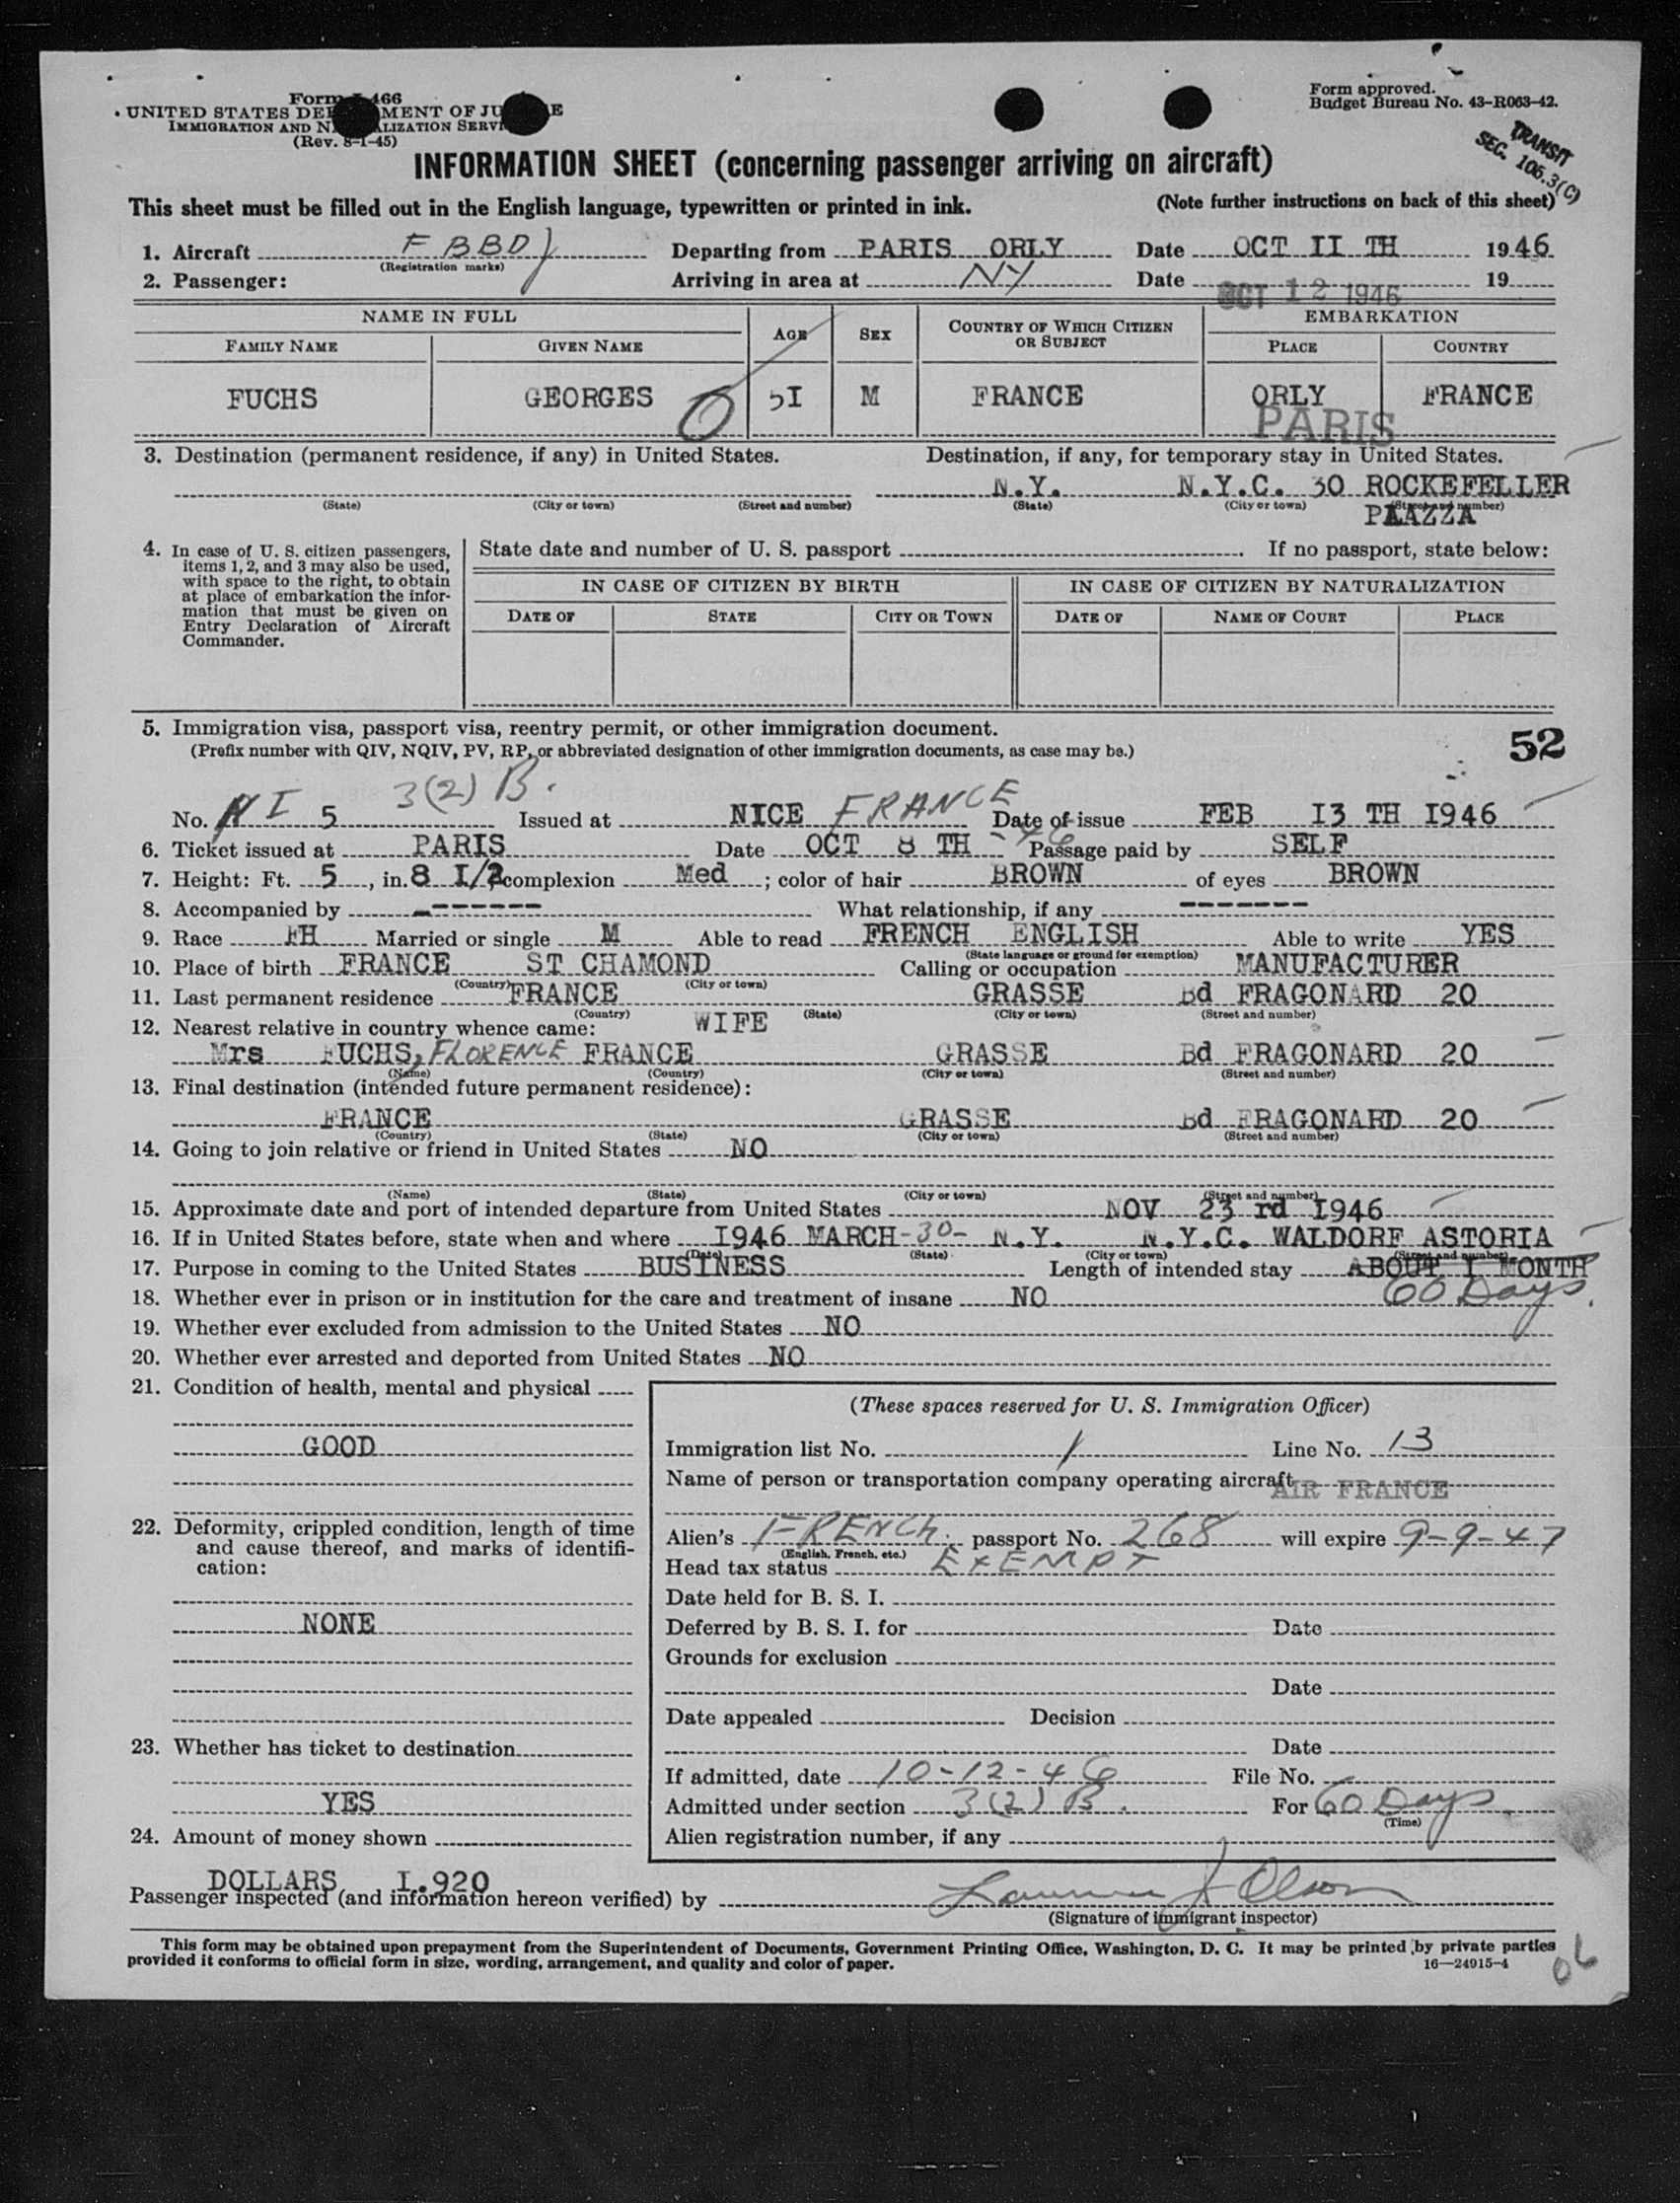 Form I-466
UNITED STATES DEPARTMENT OF JUSTICE
IMMIGRATION AND NATURALIZATION SERVICE
(Rev. 8-1-45)
Form approved.
Budget Bureau No. 43-R063-42.
TRANSIT
SEC. 106.3(C)
INFORMATION SHEET (concerning passenger arriving on aircraft)
This sheet must be filled out in the English language, typewritten or printed in ink. (Note further instructions on back of this sheet)
1. Aircraft F BBDJ Departing from PARIS ORLY Date OCT II TH 1946
(Registration marks)
2. Passenger: Arriving in area at NY Date OCT 12 1946 19
NAME IN FULL AGE SEX COUNTRY OF WHICH CITIZEN OR SUBJECT EMBARKATION
FAMILY NAME GIVEN NAME PLACE COUNTRY
FUCHS GEORGES 5I M FRANCE ORLY FRANCE
PARIS
3. Destination (permanent residence, if any) in United States. Destination, if any, for temporary stay in United States.
N.Y. N.Y.C. 30 ROCKEFELLER
(State) (City or town) (Street and number) (State) (City or town) (Street and number)
PLAZZA
4. In case of U. S. citizen passengers, items 1, 2, and 3 may also be used, with space to the right, to obtain at place of embarkation the information that must be given on Entry Declaration of Aircraft Commander.
State date and number of U. S. passport . If no passport, state below:
IN CASE OF CITIZEN BY BIRTH IN CASE OF CITIZEN BY NATURALIZATION
DATE OF STATE CITY OR TOWN DATE OF NAME OF COURT PLACE
5. Immigration visa, passport visa, reentry permit, or other immigration document.
(Prefix number with QIV, NQIV, PV, RP, or abbreviated designation of other immigration documents, as case may be.)
52
3(2) B.
No. NI 5 Issued at NICE FRANCE Date of issue FEB I3 TH I946
6. Ticket issued at PARIS Date OCT 8 TH -46 Passage paid by SELF
7. Height: Ft. 5, in. 8 I/2 complexion Med; color of hair BROWN of eyes BROWN
8. Accompanied by ------- What relationship, if any -------
9. Race FH Married or single M Able to read FRENCH ENGLISH Able to write YES
(State language or ground for exemption)
10. Place of birth FRANCE ST CHAMOND Calling or occupation MANUFACTURER
(Country) (City or town)
11. Last permanent residence FRANCE GRASSE Bd FRAGONARD 20
(Country) (State) (City or town) (Street and number)
12. Nearest relative in country whence came: WIFE
Mrs FUCHS, FLORENCE FRANCE GRASSE Bd FRAGONARD 20
(Name) (Country) (City or town) (Street and number)
13. Final destination (intended future permanent residence):
FRANCE GRASSE Bd FRAGONARD 20
(Country) (State) (City or town) (Street and number)
14. Going to join relative or friend in United States NO
(Name) (State) (City or town) (Street and number)
15. Approximate date and port of intended departure from United States NOV 23 rd I946
16. If in United States before, state when and where I946 MARCH-30- N.Y. N.Y.C. WALDORF ASTORIA
(Date) (State) (City or town) (Street and number)
17. Purpose in coming to the United States BUSINESS Length of intended stay ABOUT I MONTH
60 Days.
18. Whether ever in prison or in institution for the care and treatment of insane NO
19. Whether ever excluded from admission to the United States NO
20. Whether ever arrested and deported from United States NO
21. Condition of health, mental and physical
GOOD
22. Deformity, crippled condition, length of time and cause thereof, and marks of identification:
NONE
23. Whether has ticket to destination
YES
24. Amount of money shown
DOLLARS I.920
(These spaces reserved for U. S. Immigration Officer)
Immigration list No. 1 Line No. 13
Name of person or transportation company operating aircraft AIR FRANCE
Alien's FRENCH; passport No. 268 will expire 9-9-47
(English, French, etc.)
Head tax status EXEMPT
Date held for B. S. I.
Deferred by B. S. I. for Date
Grounds for exclusion
Date
Date appealed Decision
Date
If admitted, date 10-12-46 File No.
Admitted under section 3(2) B. For 60 Days.
(Time)
Alien registration number, if any
Passenger inspected (and information hereon verified) by J Olson
(Signature of immigrant inspector)
This form may be obtained upon prepayment from the Superintendent of Documents, Government Printing Office, Washington, D. C. It may be printed by private parties
provided it conforms to official form in size, wording, arrangement, and quality and color of paper.
16—24915-4